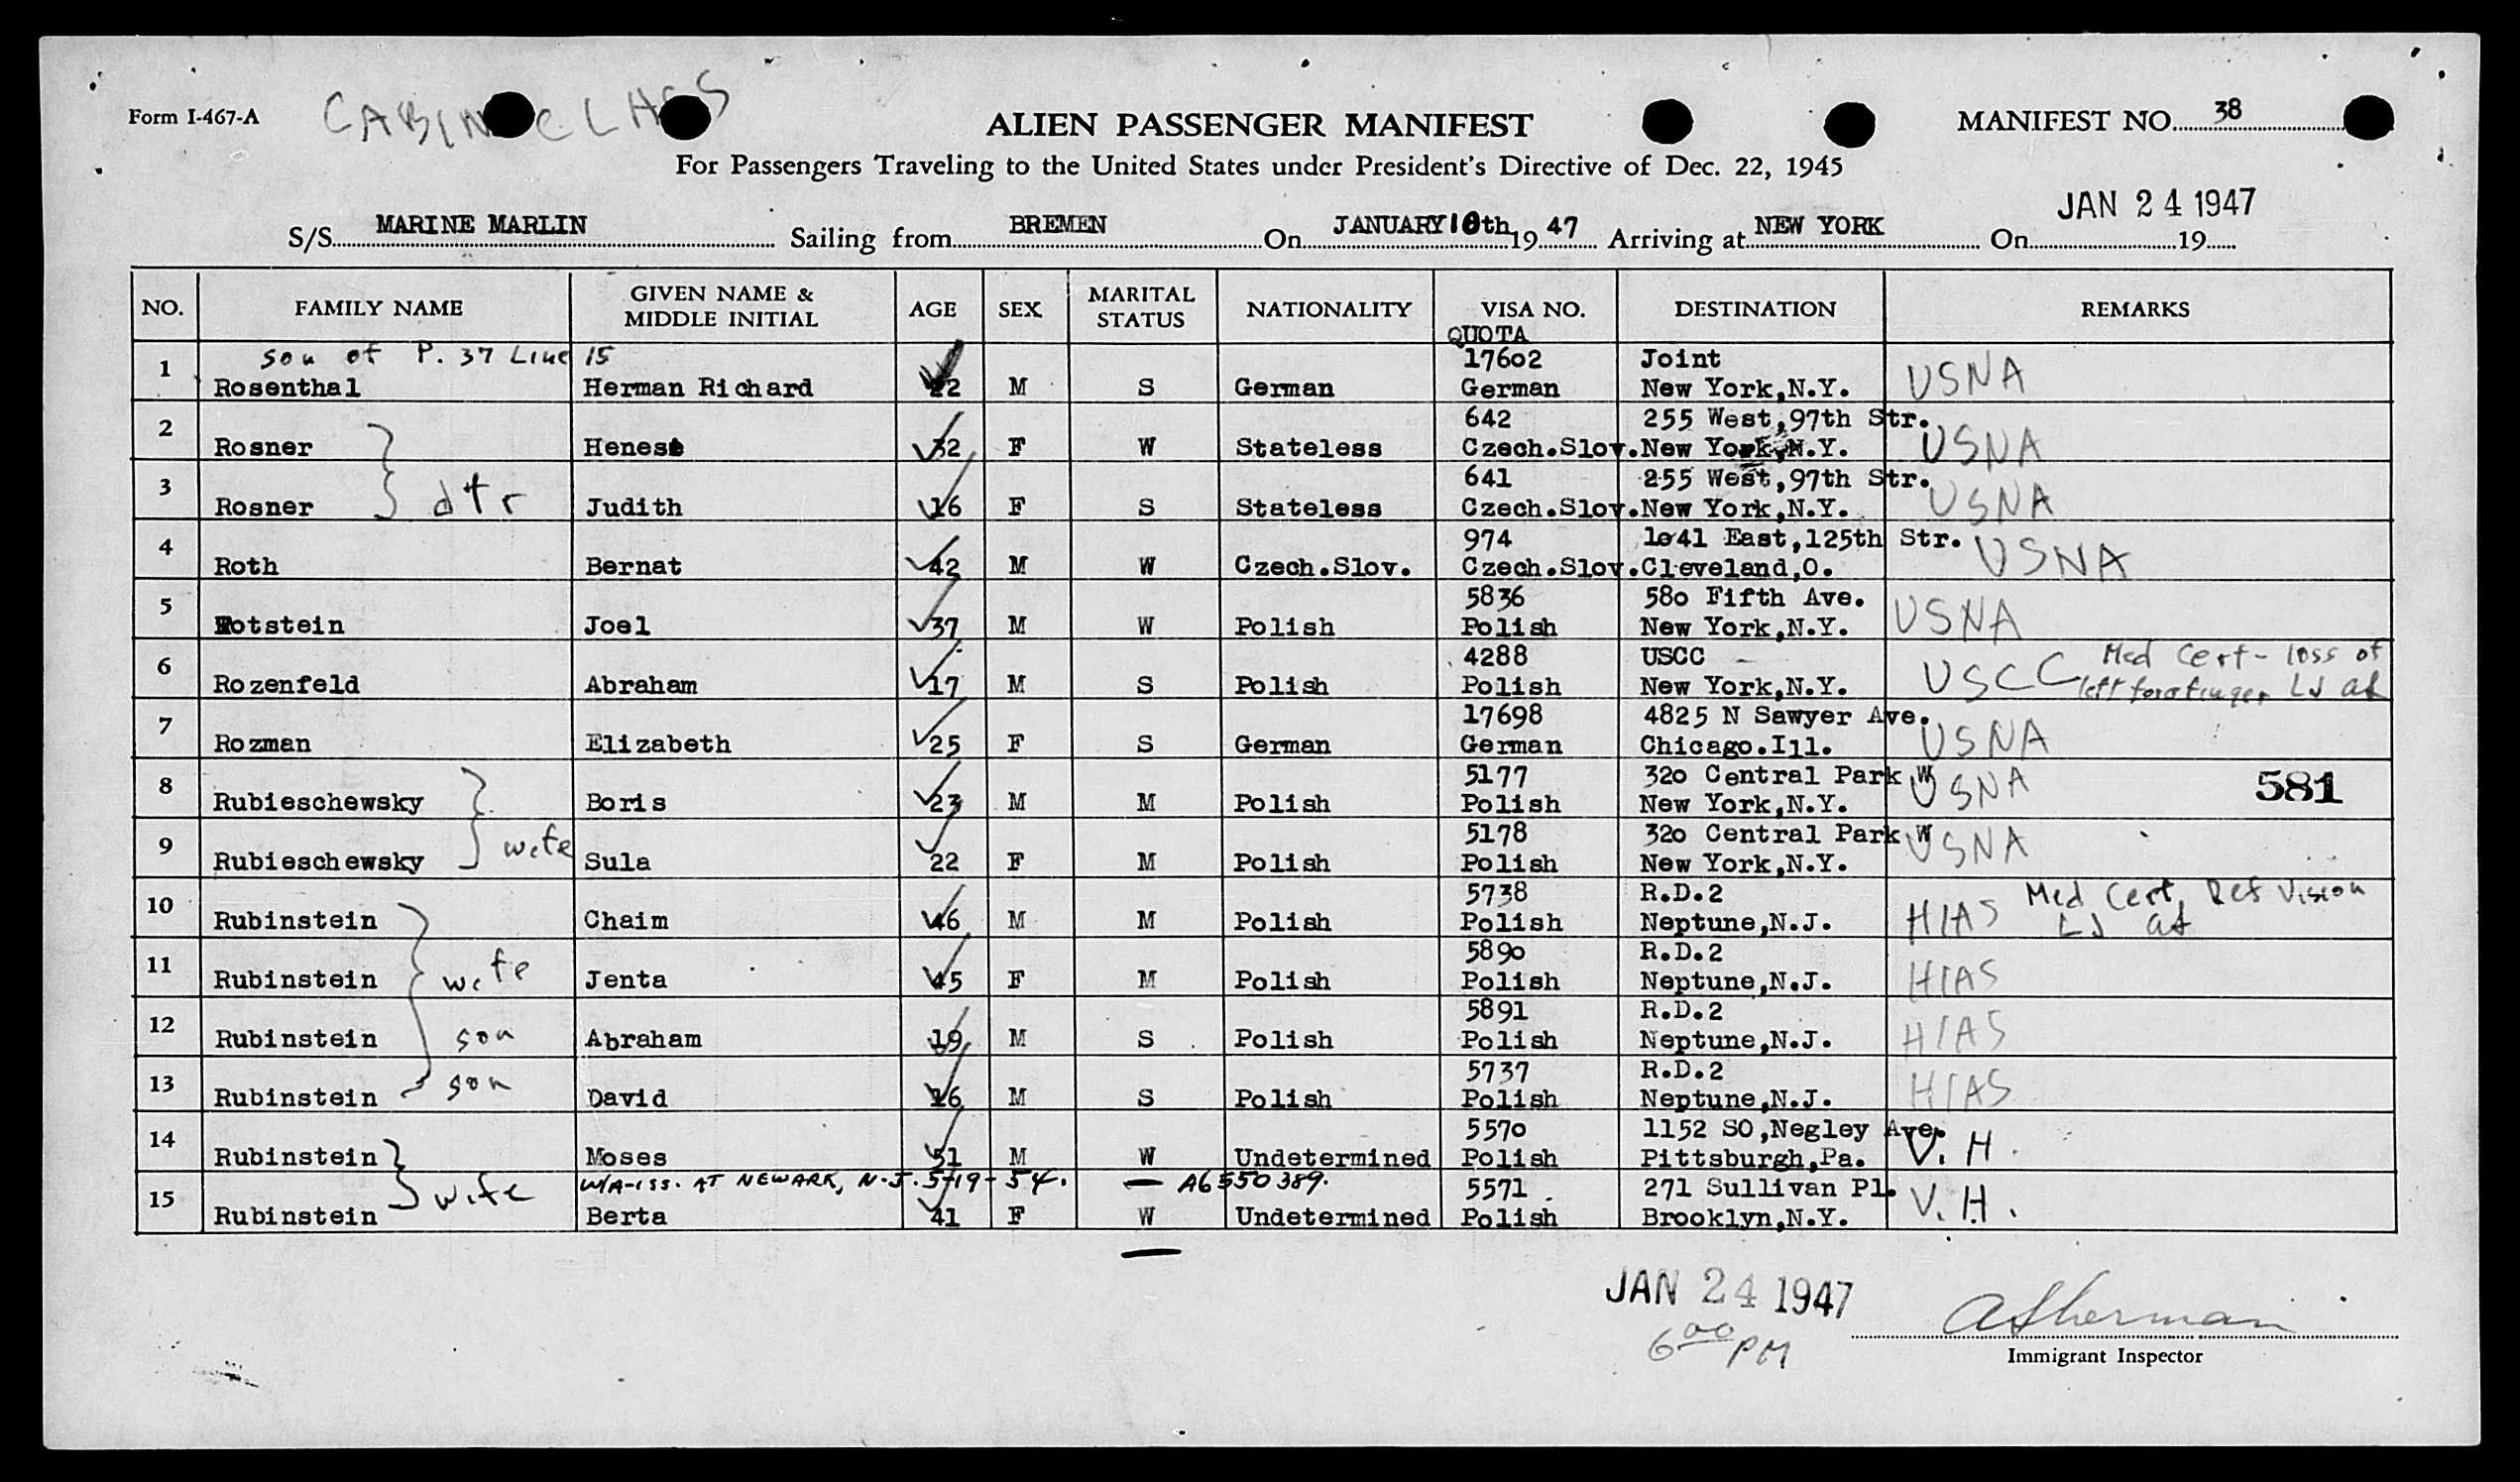 Form I-467-A
CABIN CLASS
ALIEN PASSENGER MANIFEST
MANIFEST NO. 38
For Passengers Traveling to the United States under President's Directive of Dec. 22, 1945
JAN 24 1947
S/S MARINE MARLIN Sailing from BREMEN On JANUARY 10th, 19 47 Arriving at NEW YORK On 19
NO. FAMILY NAME GIVEN NAME & MIDDLE INITIAL AGE SEX MARITAL STATUS NATIONALITY VISA NO. DESTINATION REMARKS
QUOTA
son of P. 37 Line 15 17602 Joint
1 Rosenthal Herman Richard 22 M S German German New York,N.Y. USNA
642 255 West,97th Str.
2 Rosner Henese 32 F W Stateless Czech.Slov. New York,N.Y. USNA
641 255 West,97th Str.
3 Rosner dtr Judith 16 F S Stateless Czech.Slov. New York,N.Y. USNA
974 1o41 East,125th Str.
4 Roth Bernat 42 M W Czech.Slov. Czech.Slov. Cleveland,O. USNA
5836 580 Fifth Ave.
5 Rotstein Joel 37 M W Polish Polish New York,N.Y. USNA
4288 USCC Med Cert- loss of
6 Rozenfeld Abraham 17 M S Polish Polish New York,N.Y. USCC left forefinger LJ af
17698 4825 N Sawyer Ave.
7 Rozman Elizabeth 25 F S German German Chicago.Ill. USNA
5177 320 Central Park W
8 Rubieschewsky Boris 23 M M Polish Polish New York,N.Y. USNA 581
5178 320 Central Park W
9 Rubieschewsky wife Sula 22 F M Polish Polish New York,N.Y. USNA
5738 R.D.2 Med Cert, Def Vision
10 Rubinstein Chaim 46 M M Polish Polish Neptune,N.J. HIAS LJ af
5890 R.D.2
11 Rubinstein wife Jenta 45 F M Polish Polish Neptune,N.J. HIAS
5891 R.D.2
12 Rubinstein son Abraham 19 M S Polish Polish Neptune,N.J. HIAS
5737 R.D.2
13 Rubinstein son David 16 M S Polish Polish Neptune,N.J. HIAS
5570 1152 SO,Negley Ave.
14 Rubinstein Moses 51 M W Undetermined Polish Pittsburgh,Pa. V. H.
W/A-ISS. AT NEWARK, N.J. 5-19-54. — A6 550 389. 5571 271 Sullivan Pl.
15 Rubinstein wife Berta 41 F W Undetermined Polish Brooklyn,N.Y. V. H.
JAN 24 1947
6 00 PM
ASherman
Immigrant Inspector